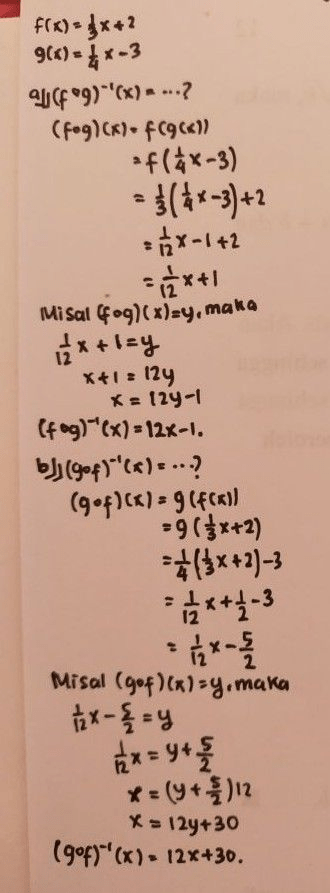 f(x) = 1/3 x + 2
g(x) = 1/4 x - 3
a)) (f∘g)⁻¹(x) = ...?
(f∘g)(x) = f(g(x))
= f(1/4 x - 3)
= 1/3 (1/4 x - 3) + 2
= 1/12 x - 1 + 2
= 1/12 x + 1
Misal (f∘g)(x) = y, maka
1/12 x + 1 = y
x + 1 = 12y
x = 12y - 1
(f∘g)⁻¹(x) = 12x - 1.
b)) (g∘f)⁻¹(x) = ...?
(g∘f)(x) = g(f(x))
= g(1/3 x + 2)
= 1/4 (1/3 x + 2) - 3
= 1/12 x + 1/2 - 3
= 1/12 x - 5/2
Misal (g∘f)(x) = y, maka
1/12 x - 5/2 = y
1/12 x = y + 5/2
x = (y + 5/2) 12
x = 12y + 30
(g∘f)⁻¹(x) = 12x + 30.